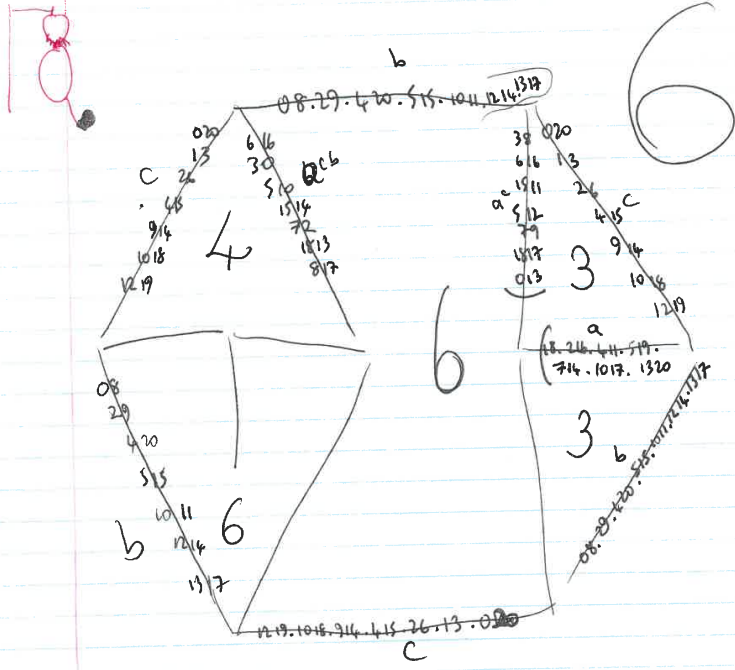 6
b
08.29.420.515.1011.1214.1317
020
13
26
415
914
1018
1219
C
4
616
30
510
1514
72
1813
817
cb
38
616
1511
512
79
1817
013
ac
020
13
26
415
914
1018
1219
C
3
a
18.216.411.519.
714.1017.1320
6
08
29
420
515
1011
1214
1317
b
6
3
b
08.29.420.515.1011.1214.1317
1219.1018.914.415.26.13.0
C